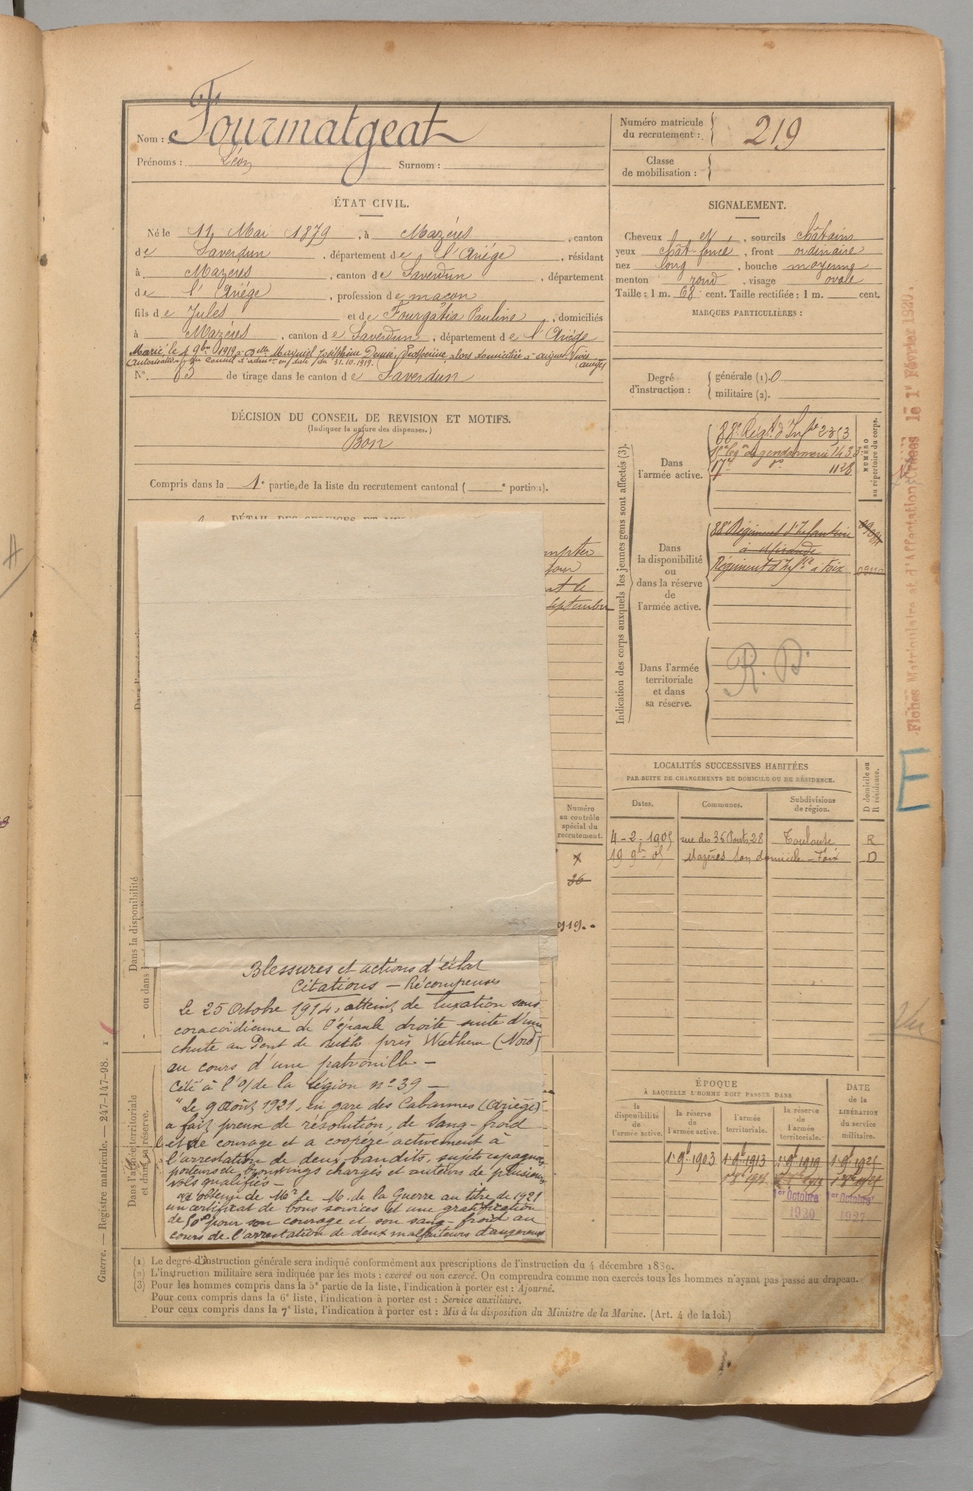 Nom : Fourmatgeat
Prénoms : Léon Surnom :
Numéro matricule du recrutement : 219
Classe de mobilisation :
ÉTAT CIVIL.
Né le 11 Mai 1879, à Mazéres, canton
de Saverdun, département de l'Ariége, résidant
à Mazeres, canton de Saverdun, département
de l'Ariége, profession de maçon
fils de Jules et de Fourgatia Pauline, domiciliés
à Mazéres, canton de Saverdun, département de l'Ariége
Marié le 4 9bre 1919 à
N° 83 de tirage dans le canton de Saverdun
SIGNALEMENT.
Cheveux, sourcils châtains
yeux chât-foncé, front ordinaire
nez long, bouche moyenne
menton rond, visage ovale
Taille : 1 m. 68 cent. Taille rectifiée : 1 m. cent.
MARQUES PARTICULIÈRES :
Degré d'instruction : générale (1). 0
militaire (2).
DÉCISION DU CONSEIL DE REVISION ET MOTIFS.
(Indiquer la nature des dispenses.)
Bon
Compris dans la 1e partie de la liste du recrutement cantonal ( e portion).
Indication des corps auxquels les jeunes gens sont affectés (3).
Dans l'armée active.
88e Régt d'Infie 2353
17e do 1128
NUMÉRO au répertoire du corps.
Dans la disponibilité ou dans la réserve de l'armée active.
88e Régiment d'Infanterie
à Mirande
Régiment d'Infie à Foix
Dans l'armée territoriale et dans sa réserve.
R. D.
Fiches Matriculaire et d'Affectation le 1er Février
E
LOCALITÉS SUCCESSIVES HABITÉES
PAR SUITE DE CHANGEMENTS DE DOMICILE OU DE RÉSIDENCE.
Dates. Communes. Subdivisions de région. D domicile ou R résidence.
4-2-1905 rue des 36 Ponts 28 Toulouse R
19 9bre 05 Mazères son domicile - Foix D
Numéro au contrôle spécial du recrutement.
36
919.
Blessures et actions d'éclat
Citations - Récompenses
Le 25 Octobre 1914, atteint de luxation sous
coracoïdienne de l'épaule droite suite d'une
chute au Pont de près (Nord)
au cours d'une patrouille -
Cité à l'O/de la légion n° 39 -
"Le 9 Août 1921, en gare des Cabannes (Ariège)
a fait preuve de résolution, de sang-froid
et de courage et a coopéré activement à
l'arrestation de deux bandits, sujets espagnols
porteurs de brownings chargés et auteurs de plusieurs
vols qualifiés -
a obtenu de Mr le M. de la Guerre au titre de 1921
un certificat de bons services et une gratification
de 50f pour son courage et son sang-froid au
cours de l'arrestation de deux malfaiteurs dangereux
ÉPOQUE
À LAQUELLE L'HOMME DOIT PASSER DANS
la disponibilité de l'armée active. la réserve de l'armée active. l'armée territoriale. la réserve de l'armée territoriale.
DATE de la LIBÉRATION du service militaire.
1er 9bre 1903
1er Octobre 1920
1er Octobre 1927
Dans la disponibilité
ou dans
Dans l'armée territoriale
et dans sa réserve.
Guerre. — Registre matricule. — 247-147-98.
(1) Le degré d'instruction générale sera indiqué conformément aux prescriptions de l'instruction du 4 décembre 1889.
(2) L'instruction militaire sera indiquée par les mots : exercé ou non exercé. On comprendra comme non exercés tous les hommes n'ayant pas passé au drapeau.
(3) Pour les hommes compris dans la 5e partie de la liste, l'indication à porter est : Ajourné.
Pour ceux compris dans la 6e liste, l'indication à porter est : Service auxiliaire.
Pour ceux compris dans la 7e liste, l'indication à porter est : Mis à la disposition du Ministre de la Marine. (Art. 4 de la loi.)